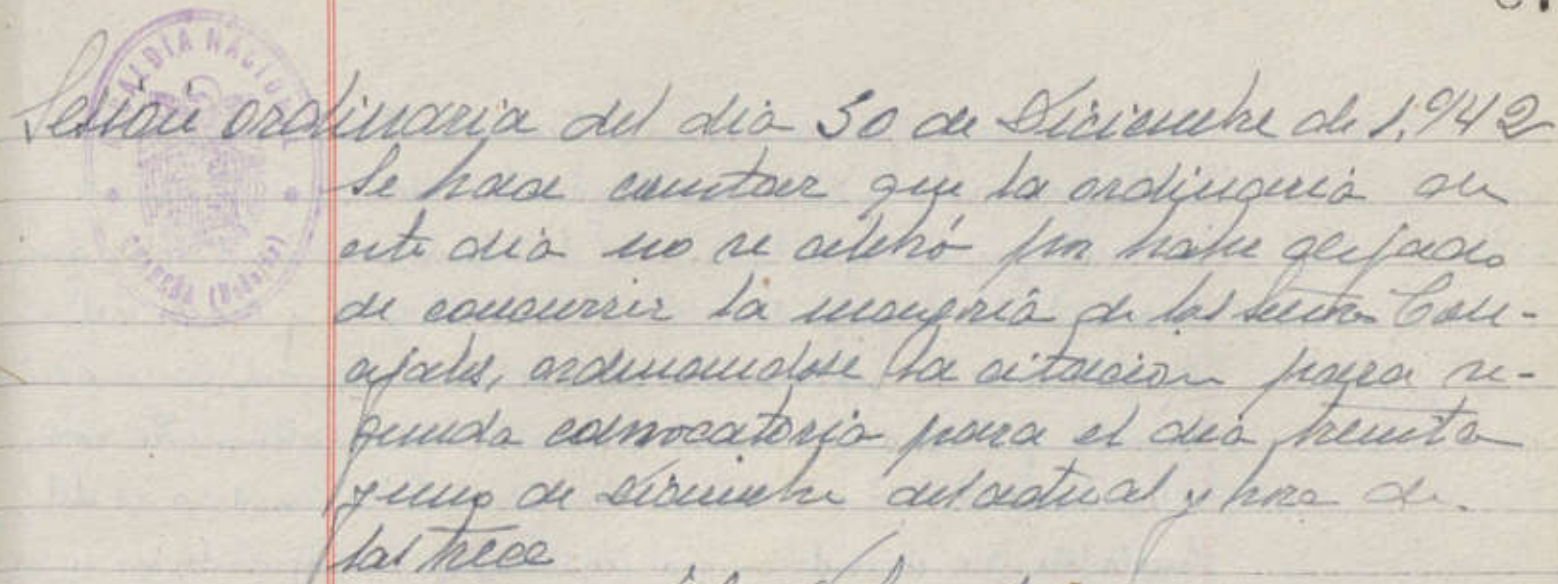 ALCALDIA NACIONAL
(Badajoz)
Sesión ordinaria del dia 30 de Diciembre de 1.942
Se hace constar que la ordinaria de
este dia no se celebró por haber dejado
de concurrir la mayoria de los señores Con-
cejales, ordenandose la citacion para se-
gunda convocatoria para el dia treinta
y uno de Diciembre del actual y hora de
las trece